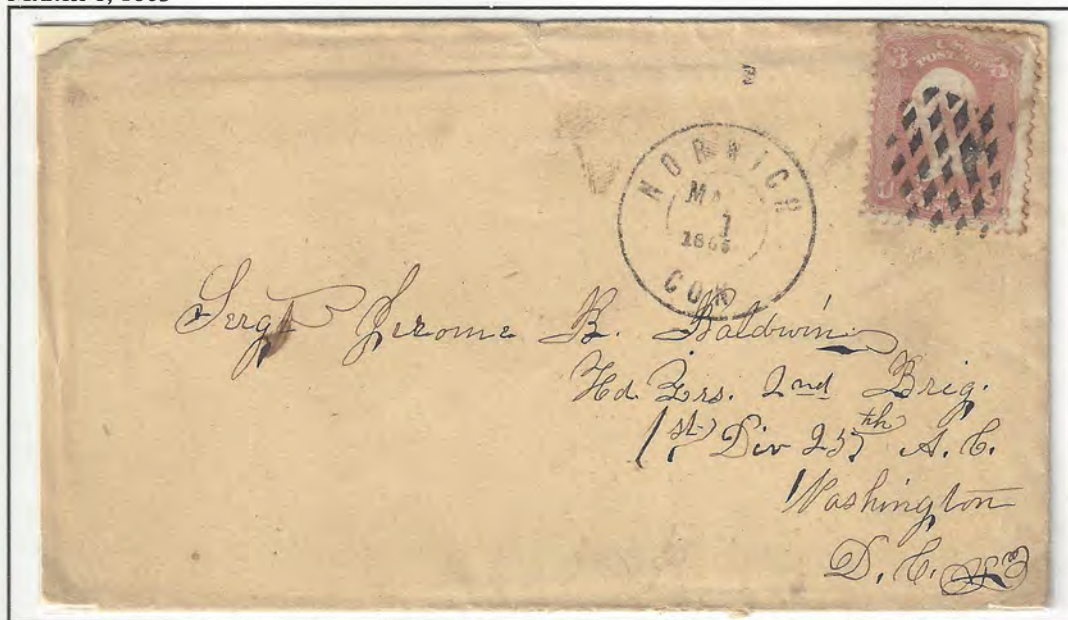 NORWICH
MA
1
1865
CON
3 U.S. 3
POSTAGE
U
Sergt Jerome B. Baldwin
Hd. Qrs. 2nd Brig.
1st Div 25th A.C.
Washington
D.C.